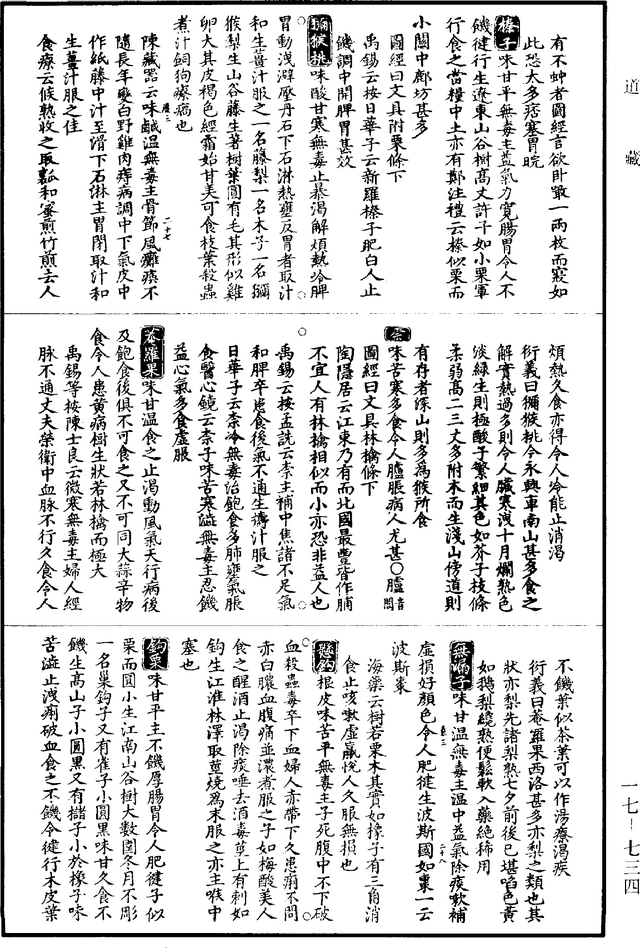 道藏
有不蚛者圖經言欲卧嚼一兩枚而寢如
此恐太多痞塞胃脘
榛子味甘平無毒主益氣力寬腸胃令人不
饑健行生遼東山谷樹高丈許子如小栗軍
行食之當糧中土亦有鄭注禮云榛似栗而
小關中鄜坊甚多
圖經曰文具附栗條下
禹錫云按日華子云新羅榛子肥白人止
饑調中開脾胃甚效
獼猴桃味酸甘寒無毒止暴渴解煩熱冷脾
胃動洩澼壓丹石下石淋熱壅反胃者取汁
和生薑汁服之一名藤梨一名木子一名獼
猴梨生山谷藤生著樹葉圓有毛其形似雞
卵大其皮褐色經霜始甘美可食枝葉殺蟲
煮汁飼狗療病也
陳藏器云味鹹溫無毒主骨節風癱瘓不
隨長年變白野雞肉痔病調中下氣皮中
作紙藤中汁至滑下石淋主胃閉取汁和
生薑汁服之佳
食療云候熟收之取瓤和蜜煎竹煎去人
煩熱久食亦得令人冷能止消渴
衍義曰獼猴桃今永興軍南山甚多食之
解實熱過多則令人臟寒洩十月爛熟色
淡綠生則極酸子繁細其色如芥子枝條
柔弱高二三丈多附木而生淺山傍道則
有存者深山則多為猴所食
柰味苦寒多食令人臚脹病人尤甚○臚音閭
圖經曰文具林檎條下
陶隱居云江東乃有而北國最豐皆作脯
不宜人有林檎相似而小亦恐非益人也
禹錫云按孟詵云柰主補中焦諸不足氣
和脾卒患食後氣不通生擣汁服之
日華子云柰冷無毒治飽食多肺壅氣脹
食醫心鏡云柰子味苦寒澀無毒主忍饑
益心氣多食虛脹
菴羅果味甘溫食之止渴動風氣天行病後
及飽食後俱不可食之又不可同大蒜辛物
食令人患黃病樹生狀若林檎而極大
禹錫等按陳士良云微寒無毒主婦人經
脉不通丈夫榮衛中血脉不行久食令人
不饑葉似茶葉可以作湯療渴疾
衍義曰菴羅果西洛甚多亦梨之類也其
狀亦梨先諸梨熟七夕前後已堪啗色黃
如鵝梨纔熟便鬆軟入藥絕稀用
無漏子味甘溫無毒主溫中益氣除痰嗽補
虛損好顏色令人肥健生波斯國如棗一云
波斯棗
海藥云樹若栗木其實如橡子有三角消
食止咳嗽虛羸悅人久服無損也
懸鉤根皮味苦平無毒主子死腹中不下破
血殺蟲毒卒下血婦人赤帶下久患痢不問
赤白膿血腹痛並濃煮服之子如梅酸美人
食之醒酒止渴除痰唾去酒毒莖上有刺如
鉤生江淮林澤取莖燒為末服之亦主喉中
塞也
鉤栗味甘平主不饑厚腸胃令人肥健子似
栗而圓小生江南山谷樹大數圍冬月不彫
一名巢鉤子又有雀子小圓黑味甘久食不
饑生高山子小圓黑又有櫧子小於橡子味
苦澀止洩痢破血食之不饑令健行木皮葉
一七-七三四